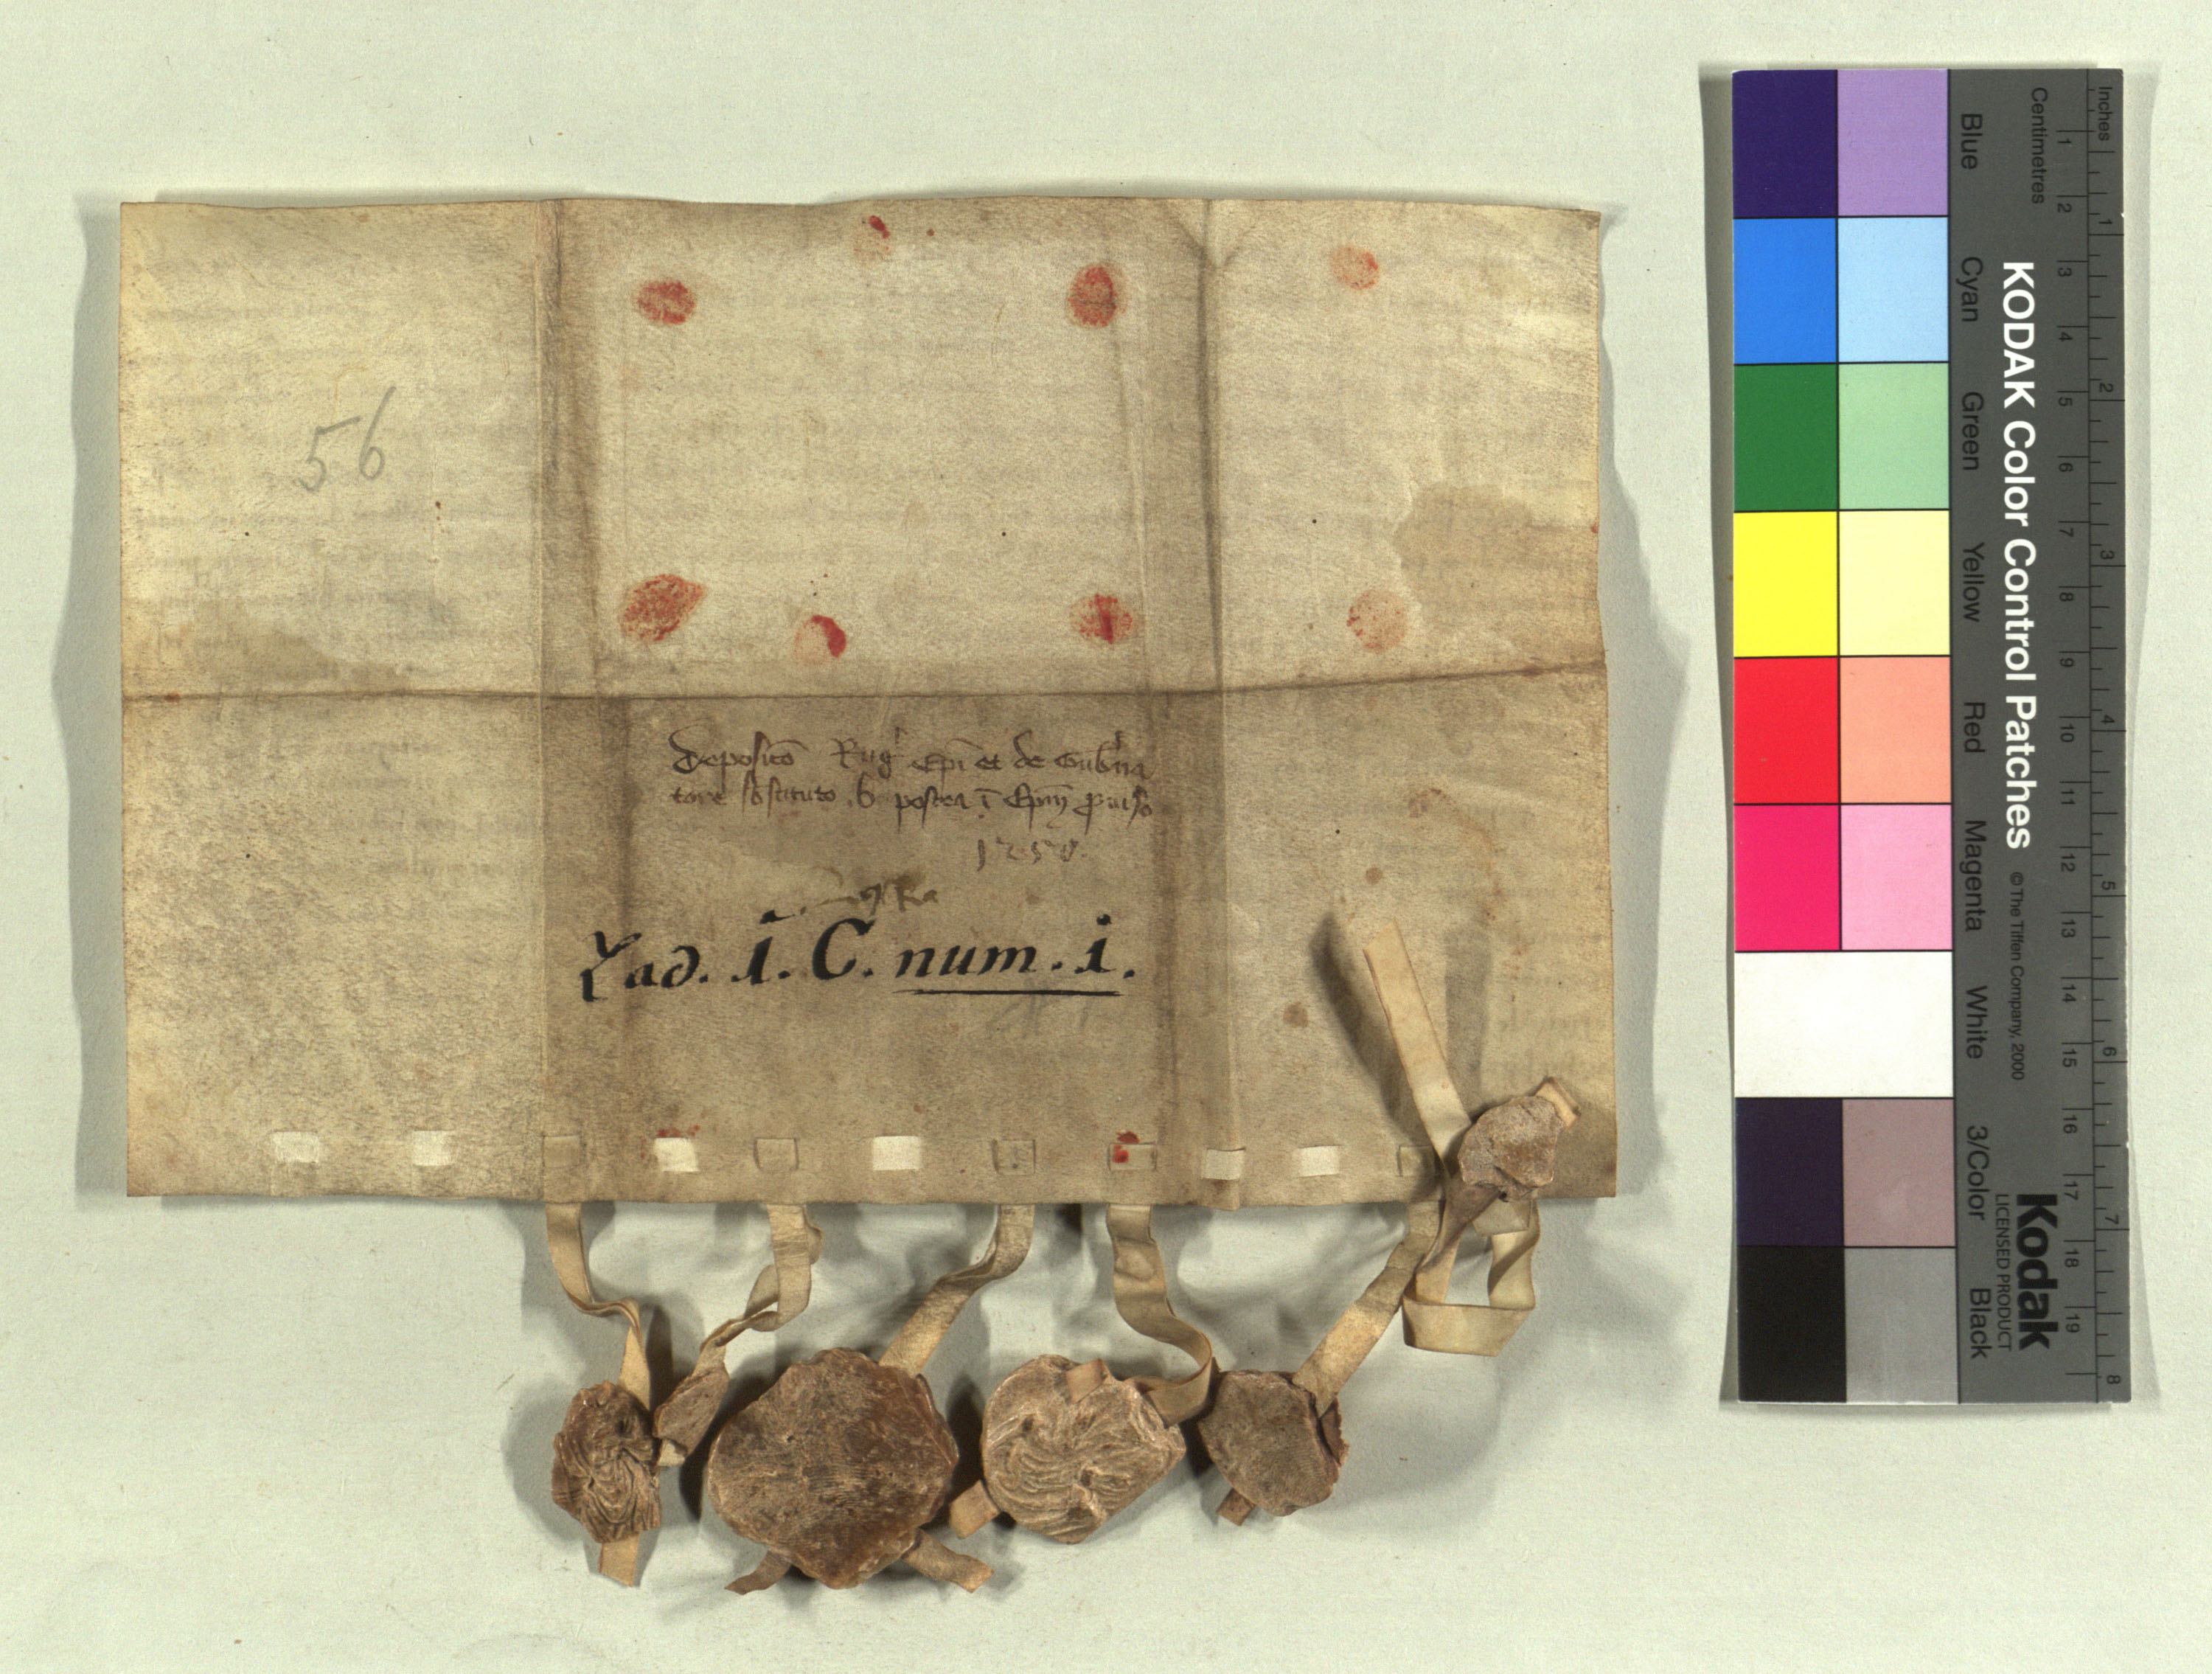 56
Depositō Rug' Epī et de Gub'na
tore sbstituto .b postea ī Epm̄ ꝓuiso
125
Lad. i. C. num. i.
Inches
Centimetres
1 2 3 4 5 6 7 8
1 2 3 4 5 6 7 8 9 10 11 12 13 14 15 16 17 18 19
KODAK Color Control Patches
© The Tiffen Company, 2000
Kodak
LICENSED PRODUCT
Blue
Cyan
Green
Yellow
Red
Magenta
White
3/Color
Black